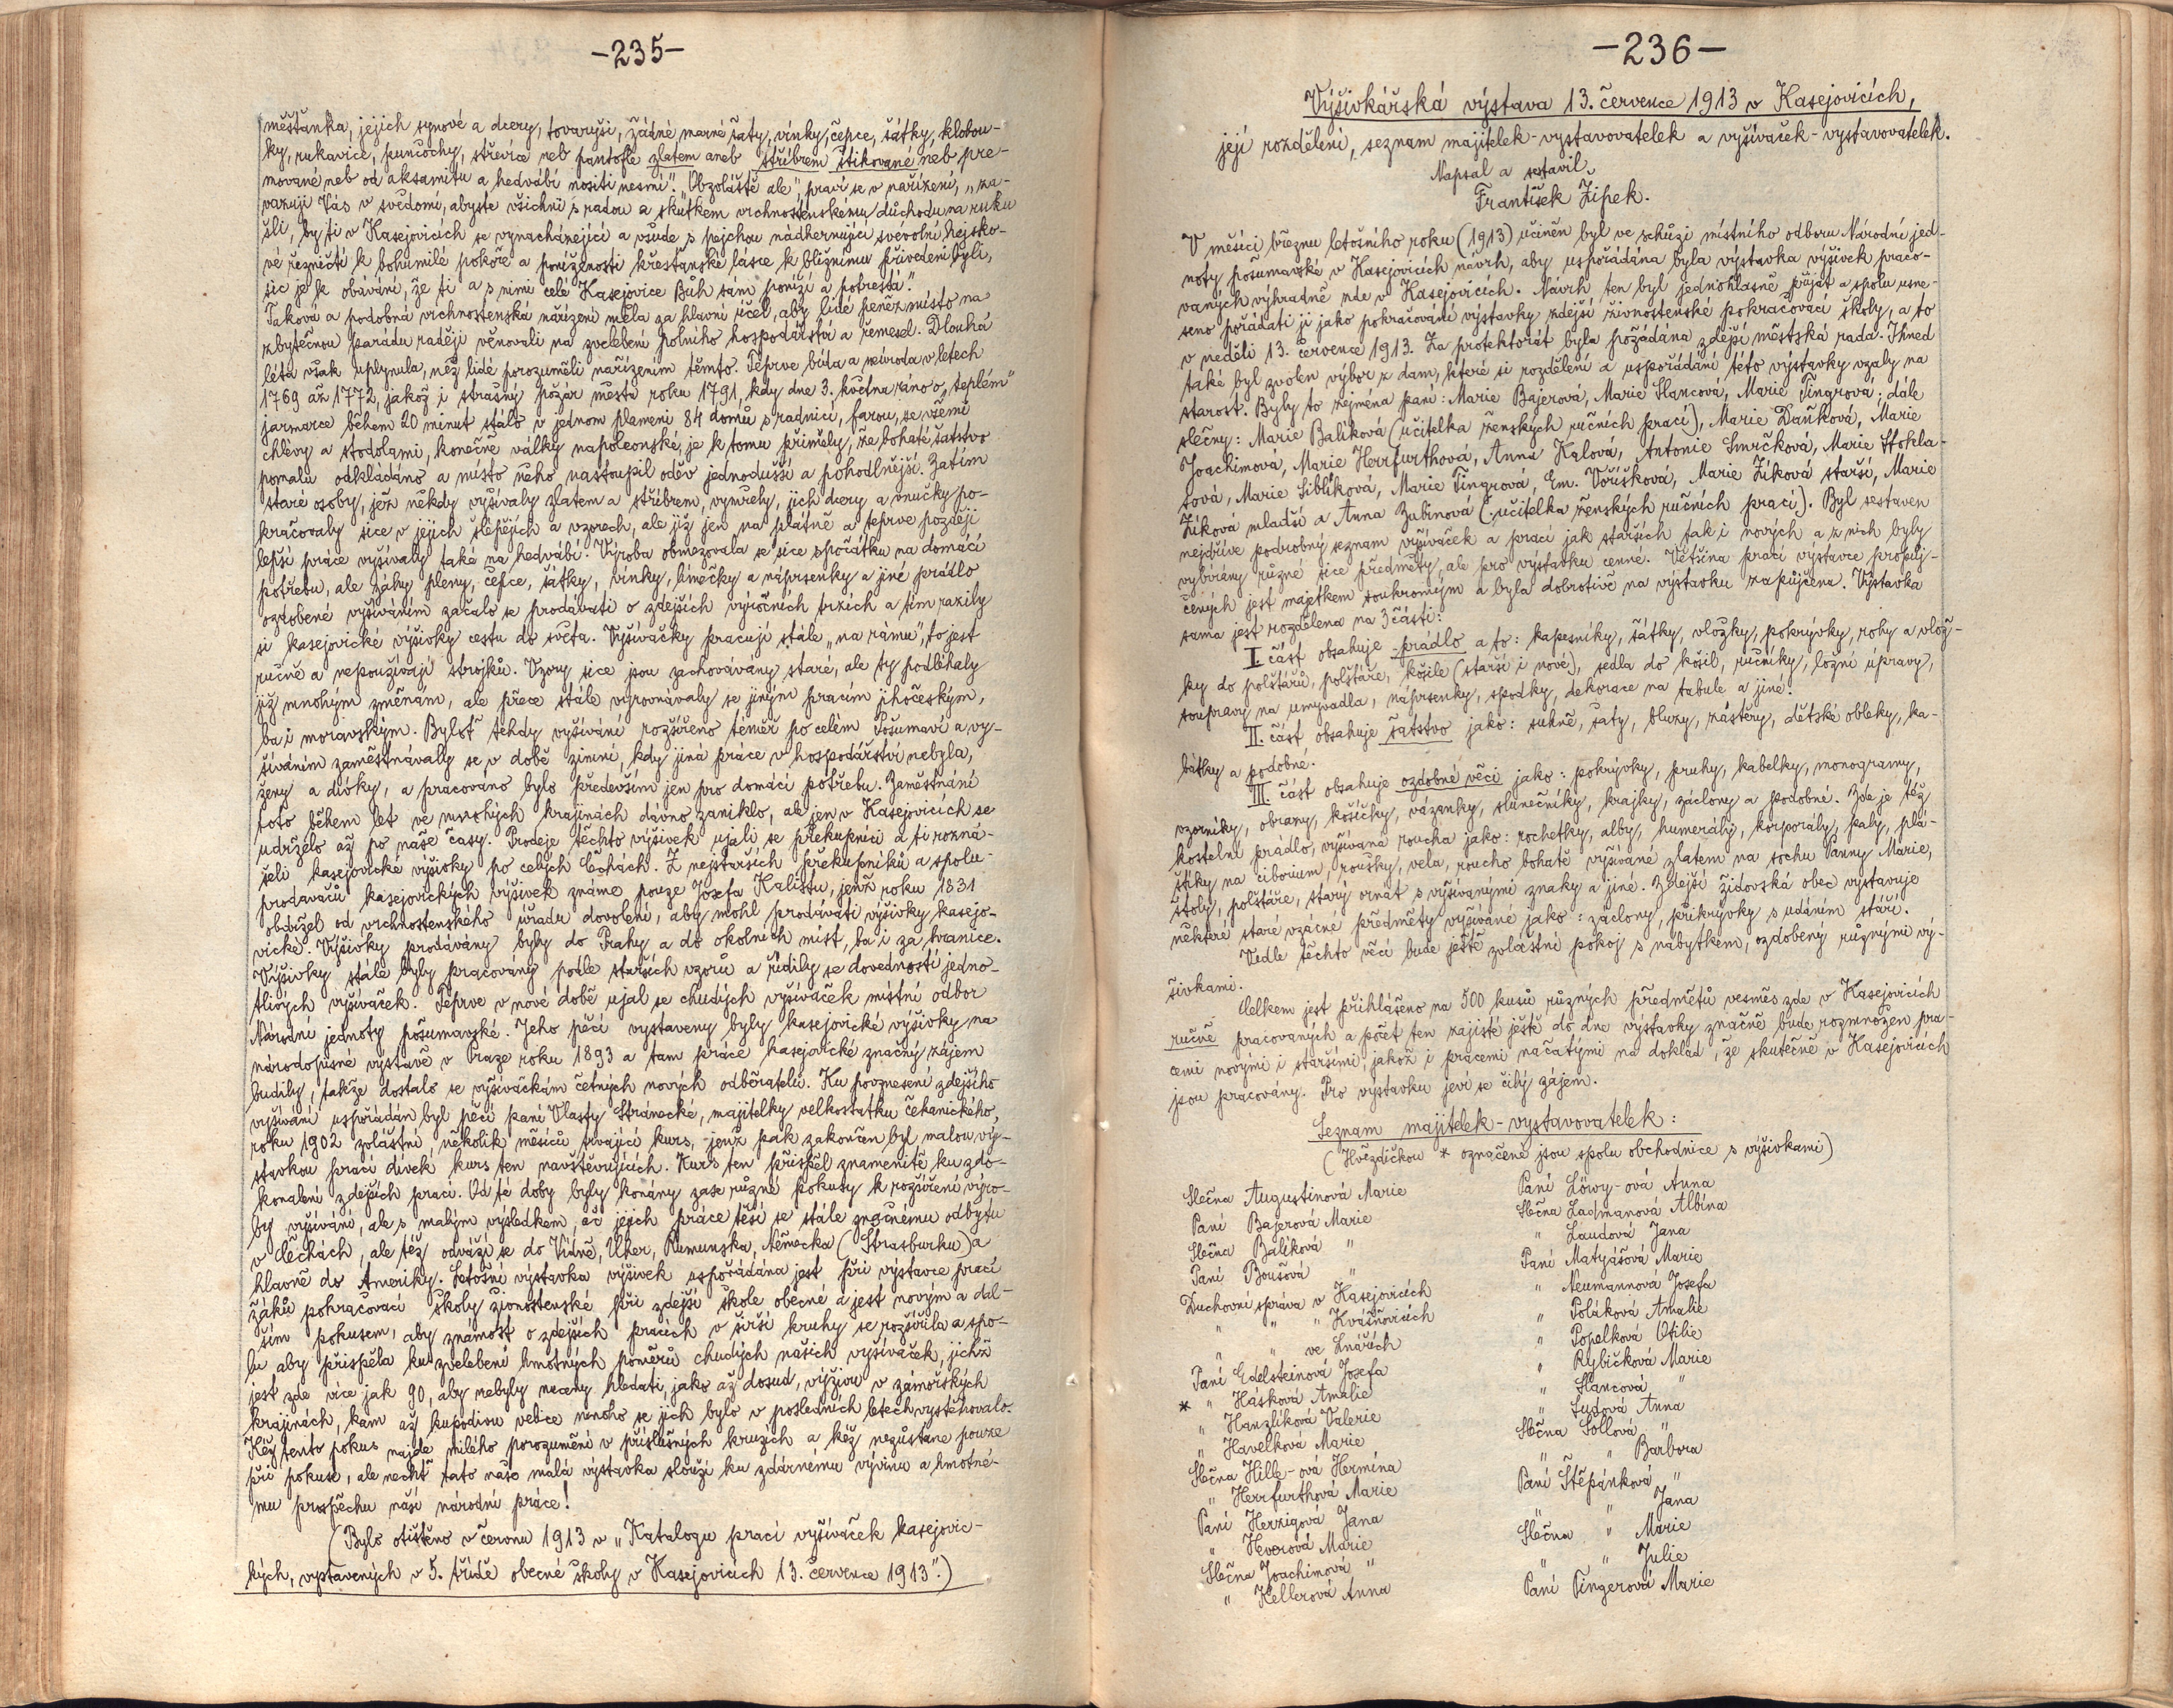 -235-
měšťanka, jejich synové a dcery, tovaryši, žádné marné šaty, vínky, čepce, šátky, klobou-
ky, rukavice, punčochy, střevíce neb pantofle zlatem aneb stříbrem štikované neb pre-
mované neb od aksamitu a hedvábí nositi nesmí". "Obzvláště ale", praví se v nařízení, "za-
vazuji Vás v svědomí, abyste všichni s radou a skutkem vrchnostenskému důchodu na ruku
šli, by ti v Kasejovicích se vynacházející a všude s pejchou nádhernující svévolní hejsko-
vé řezničtí k bohumilé pokoře a poníženosti křesťanské lásce k bližnímu přivedeni byli,
sic je se obávání, že ti a s nimi celé Kasejovice Bůh sám poníží a potrestá".
Taková a podobná vrchnostenská nařízení měla za hlavní účel, aby lidé peněz místo na
zbytečnou parádu raději věnovali na zvelebení polního hospodářství a řemesel. Dlouhá
léta však uplynula, než lidé porozuměli nařízením těmto. Teprve bída a neúroda v letech
1769 až 1772, jakož i strašný požár města roku 1791, kdy dne 3. května ráno o "teplém"
jarmarce během 20 minut stálo v jednom plameni 84 domů s radnicí, farou, se všemi
chlévy a stodolami, konečně války napoleonské, je k tomu přiměly, že bohaté šatstvo
pomalu odkládáno a místo něho nastoupil oděv jednodušší a pohodlnější. Zatím
staré osoby, jež někdy vyšívaly zlatem a stříbrem, vymřely, jich dcery a vnučky po-
kračovaly sice v jejich šlépějích a vzorech, ale již jen na plátně a teprve později
lepší práce vyšívaly také na hedvábí. Výroba obmezovala se sice zpočátku na domácí
potřebu, ale záhy pleny, čepce, šátky, vínky, límečky a náprsenky a jiné prádlo
ozdobené vyšíváním začalo se prodávati o zdejších výročních trzích a tím razily
si kasejovické výšivky cestu do světa. Vyšívačky pracují stále "na rámu", to jest
ručně a nepoužívají strojků. Vzory sice jsou zachovávány staré, ale ty podléhaly
již mnohým změnám, ale přece stále vyrovnávaly se jiným pracím jihočeským,
ba i moravským. Byloť tehdy vyšívání rozšířeno téměř po celém Pošumaví a vy-
šíváním zaměstnávaly se v době zimní, kdy jiná práce v hospodářství nebyla,
ženy a dívky, a pracováno bylo především jen pro domácí potřebu. Zaměstnání
toto během let ve mnohých krajinách dávno zaniklo, ale jen v Kasejovicích se
udrželo až po naše časy. Prodeje těchto výšivek ujali se překupníci a ti rozná-
šeli kasejovické výšivky po celých Čechách. Z nejstarších překupníků a spolu-
prodavačů kasejovických výšivek známe pouze Josefa Kalistu, jenž roku 1831
obdržel od vrchnostenského úřadu dovolení, aby mohl prodávati výšivky kasejo-
vické. Výšivky prodávány byly do Prahy a do okolních míst, ba i za hranice.
Výšivky stále byly pracovány podle starších vzorů a řídily se dovedností jedno-
tlivých vyšívaček. Teprve v nové době ujal se chudých vyšívaček místní odbor
Národní jednoty pošumavské. Jeho péčí vystaveny byly kasejovické výšivky na
národopisné výstavě v Praze roku 1893 a tam práce kasejovické značný zájem
budily, takže dostalo se vyšívačkám četných nových odběratelů. Ku povznesení zdejšího
vyšívání uspořádán byl péčí paní Vlasty Stránecké, majitelky velkostatku čekanického,
roku 1902 zvláštní, několik měsíců trvající kurs, jenž pak zakončen byl malou vý-
stavkou prací dívek kurs ten navštěvujících. Kurs ten přispěl znamenitě ku zdo-
konalení zdejších prací. Od té doby byly konány zase různé pokusy k rozšíření výro-
by vyšívání, ale s malým výsledkem, ač jejich práce těší se stále značnému odbytu
v Čechách, ale též odváží se do Vídně, Uher, Rumunska, Německa (Štrasburku) a
hlavně do Ameriky. Letošní výstavka výšivek uspořádána jest při výstavce prací
žáků pokračovací školy živnostenské při zdejší škole obecné a jest novým a dal-
ším pokusem, aby známost o zdejších pracích v širší kruhy se rozšířila a spo-
lu aby přispěla ku zvelebení hmotných poměrů chudých našich vyšívaček, jichž
jest zde více jak 90, aby nebyly nuceny hledati, jako až dosud, výživu v zámořských
krajinách, kam až kupodivu velice mnoho se jich bylo v posledních letech vystěhovalo.
Kéž tento pokus najde milého porozumění v příslušných kruzích a kéž nezůstane pouze
při pokuse, ale nechť tato naše malá výstavka slouží ku zdárnému vývinu a hmotné-
mu prospěchu naší národní práce!
(Bylo otištěno v červnu 1913 v "Katalogu prací vyšívaček kasejovic-
kých, vystavených v 5. třídě obecné školy v Kasejovicích 13. července 1913".)
-236-
Výšivkářská výstava 13. července 1913 v Kasejovicích,
její rozdělení, seznam majitelek-vystavovatelek a vyšívaček-vystavovatelek.
Napsal a sestavil
František Žipek.
V měsíci březnu letošního roku (1913) učiněn byl ve schůzi místního odboru Národní jed-
noty pošumavské v Kasejovicích návrh, aby uspořádána byla výstavka výšivek praco-
vaných výhradně zde v Kasejovicích. Návrh ten byl jednohlasně přijat a spolu usne-
seno pořádati ji jako pokračování výstavky zdejší živnostenské pokračovací školy, a to
v neděli 13. července 1913. Za protektorát byla požádána zdejší městská rada. Ihned
také byl zvolen výbor z dam, které si rozdělení a uspořádání této výstavky vzaly na
starost. Byly to zejména paní: Marie Bajerová, Marie Slancová, Marie Tingrová; dále
slečny: Marie Balíková (učitelka ženských ručních prací), Marie Daňková, Marie
Joachimová, Marie Herrfurthová, Anna Kalová, Antonie Smrčková, Marie Stohla-
sová, Marie Siblíková, Marie Tingrová, Em. Voříšková, Marie Zíková starší, Marie
Zíková mladší a Anna Zubinová (učitelka ženských ručních prací). Byl sestaven
nejdříve podrobný seznam vyšívaček a prací jak starších tak i nových a z nich byly
vybírány různé sice předměty, ale pro výstavku cenné. Většina prací výstavce propůj-
čených jest majetkem soukromým a byla dobrotivě na výstavku zapůjčena. Výstavka
sama jest rozdělena na 3 části:
I. část obsahuje prádlo a to: kapesníky, šátky, vložky, pokrývky, rohy a vlož-
ky do polštářů, polštáře, košile (starší i nové), sedla do košil, ručníky, ložní úpravy,
soupravy na umyvadla, náprsenky, spodky, dekorace na tabule a jiné.
II. část obsahuje šatstvo jako: sukně, šaty, bluzy, zástěry, dětské obleky, ka-
bátky a podobné.
III. část obsahuje ozdobné věci jako: pokrývky, pruhy, kabelky, monogramy,
vzorníky, obrazy, košíčky, vázanky, slunečníky, krajky, záclony a podobné. Zde je též
kostelní prádlo, vyšívaná roucha jako: rochetky, alby, humerály, korporály, paly, plá-
štíky na ciborium, roušky, vela, roucho bohatě vyšívané zlatem na sochu Panny Marie,
štoly, polštáře, starý ornát s vyšívanými znaky a jiné. Zdejší židovská obec vystavuje
některé staré vzácné předměty vyšívané jako: záclony, přikrývky s udáním stáří.
Vedle těchto věcí bude ještě zvláštní pokoj s nábytkem, ozdobený různými vý-
šivkami.
Celkem jest přihlášeno na 500 kusů různých předmětů vesměs zde v Kasejovicích
ručně pracovaných a počet ten zajisté ještě do dne výstavky značně bude rozmnožen pra-
cemi novými i staršími, jakož i pracemi načatými na doklad, že skutečně v Kasejovicích
jsou pracovány. Pro výstavku jeví se čilý zájem.
Seznam majitelek-vystavovatelek:
(Hvězdičkou * označené jsou spolu obchodnice s výšivkami)
Slečna Augustinová Marie
Paní Bajerová Marie
Slečna Balíková "
Paní Boušová "
Duchovní správa v Kasejovicích
" " " Kvášňovicích
" " ve Lnářích
Paní Edelsteinová Josefa
* " Hásková Amalie
" Hanzlíková Valerie
" Havelková Marie
Slečna Hille-ová Hermína
" Herrfurthová Marie
Paní Herzigová Jana
" Hvorová Marie
Slečna Joachimová "
" Kellerová Anna
Paní Löwy-ová Anna
Slečna Ladmanová Albína
" Laudová Jana
Paní Matyášová Marie
" Neumannová Josefa
" Poláková Amalie
" Popelková Otilie
" Rybičková Marie
" Slancová "
" Sudová Anna
Slečna Šollová "
" " Barbora
Paní Štěpánková "
" " Jana
Slečna " Marie
" " Julie
Paní Tingerová Marie